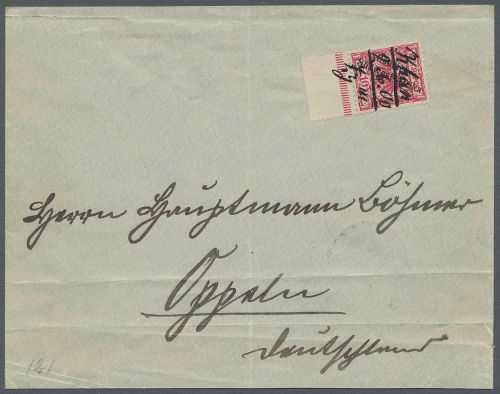 Herrn Hauptmann Böhmer
Oppeln
Deutschland